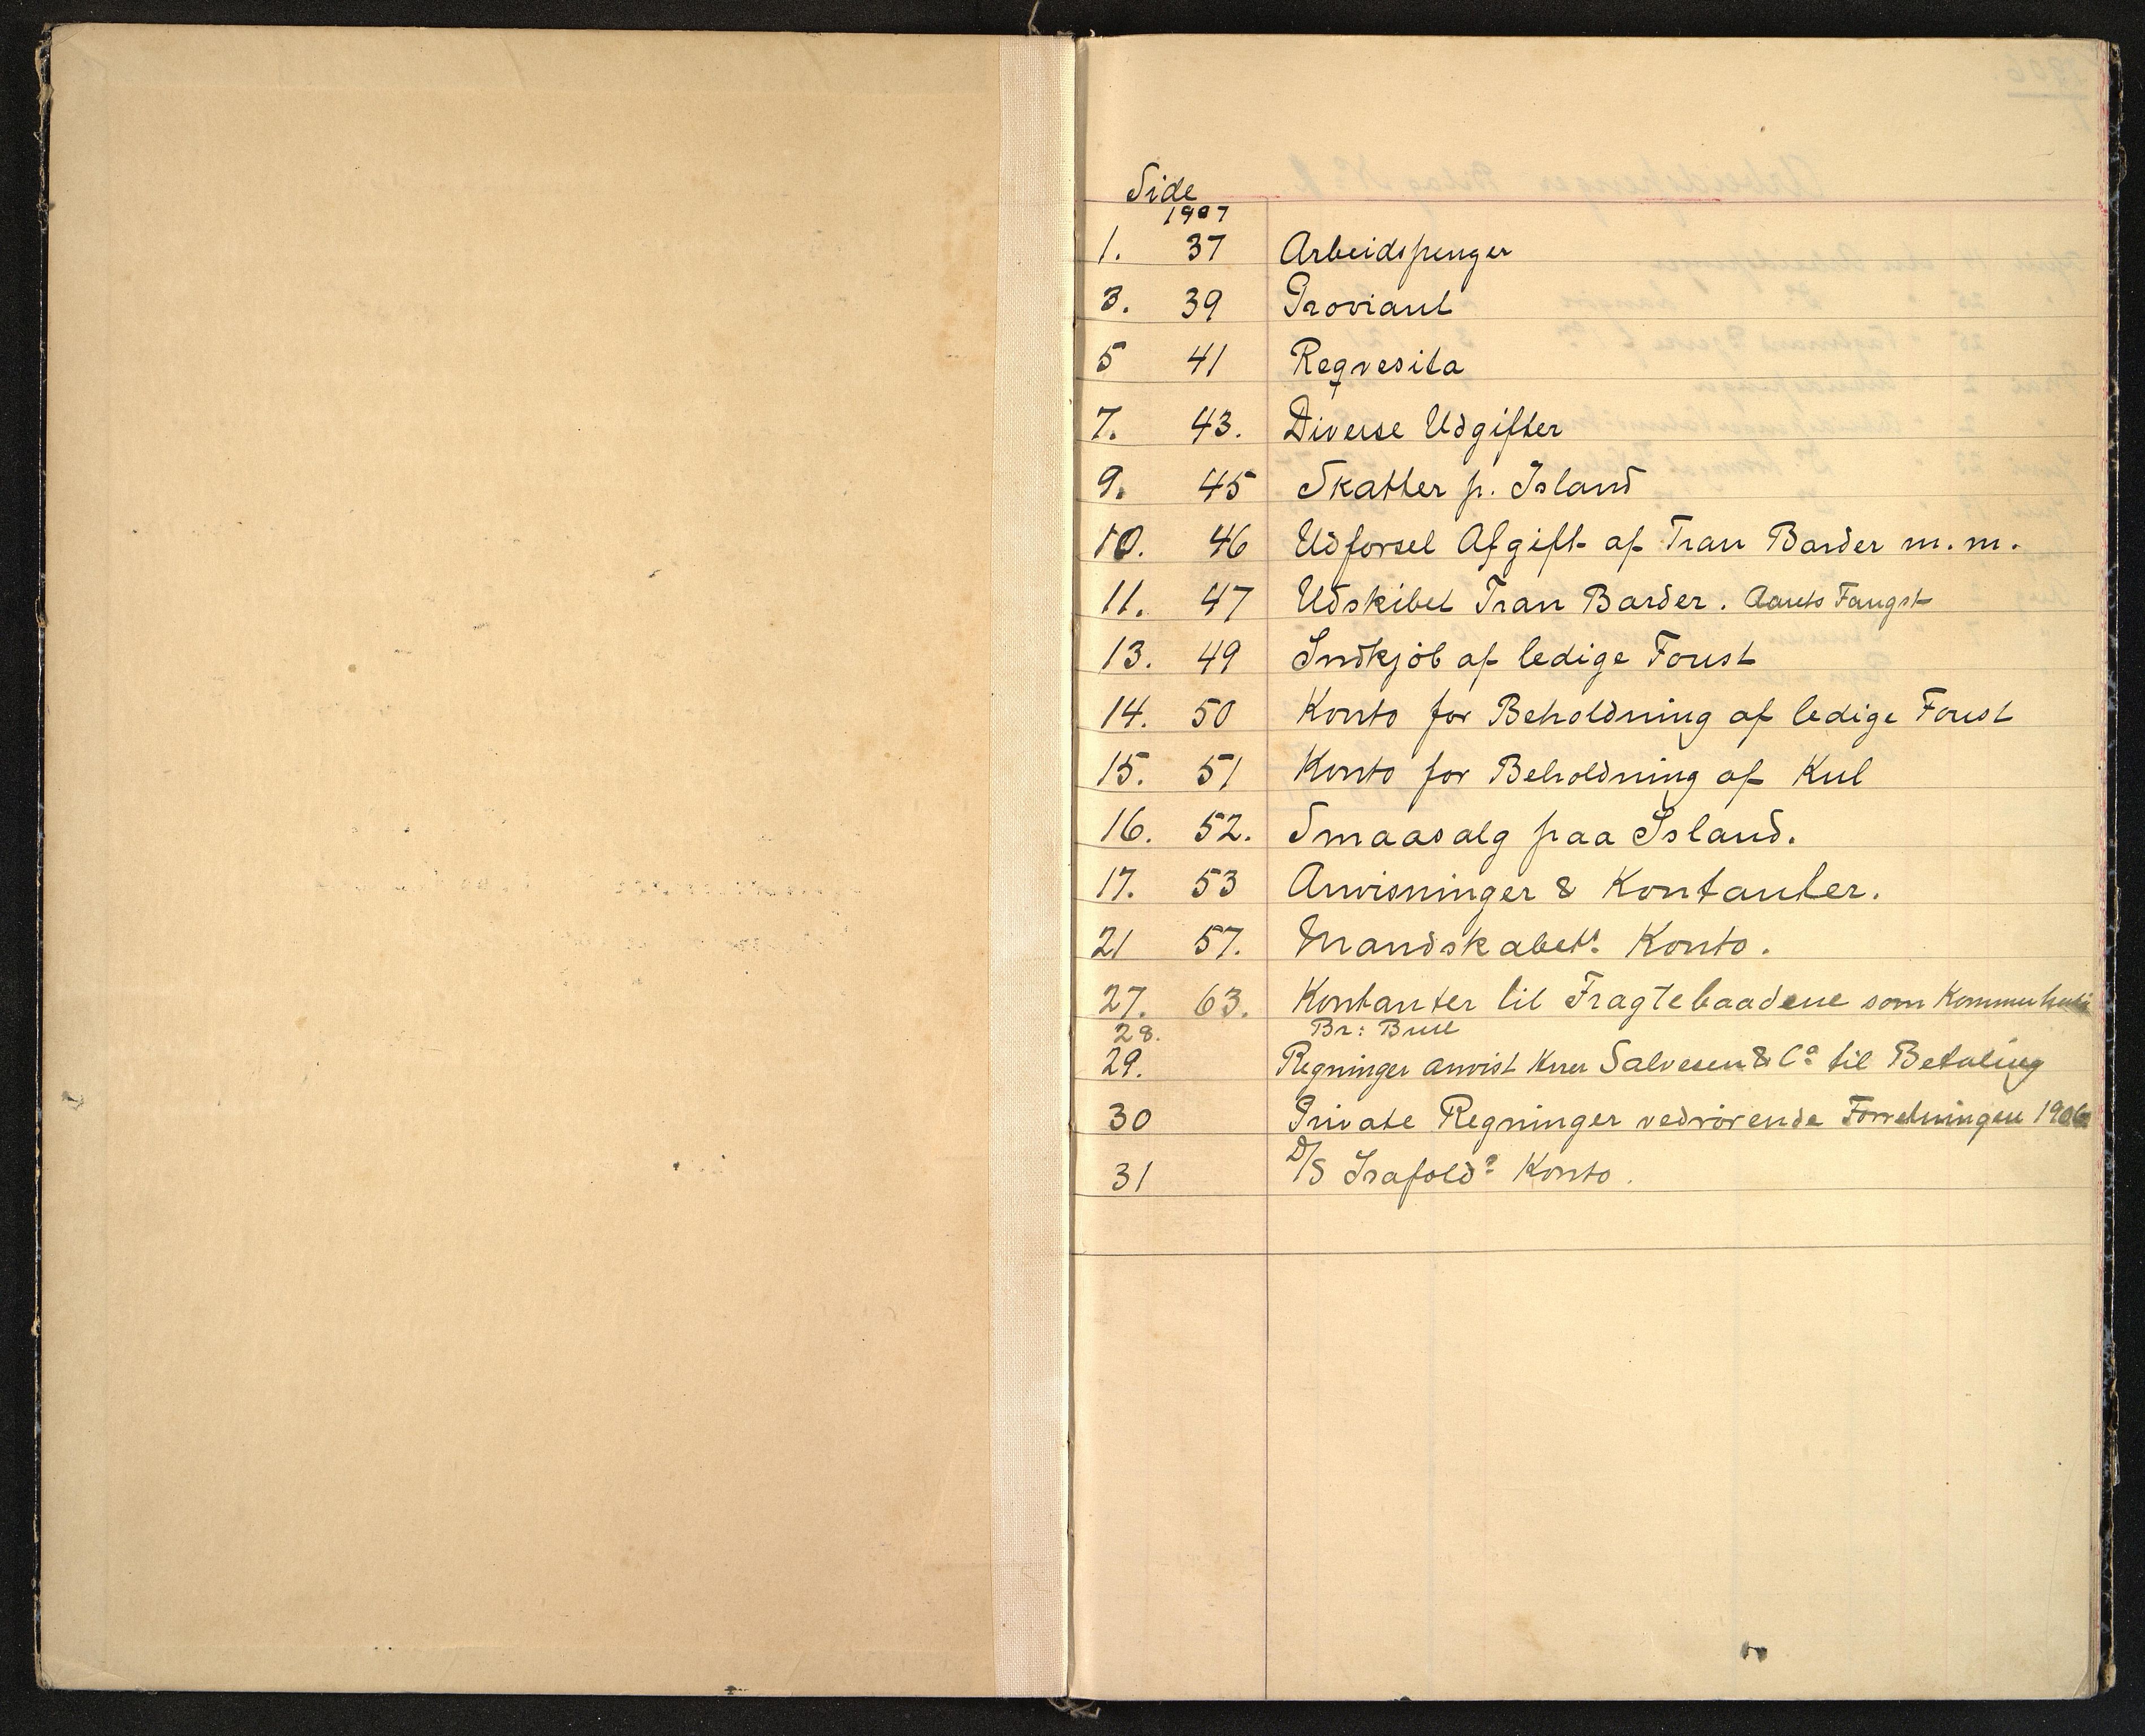 Side
1907
1. 37 Arbeidspenger
3. 39 Proviant
5 41 Reqvesita
7. 43. Diverse Udgifter
9. 45 Skatter p. Island
10. 46 Udforsel Afgift af Tran Barder m.m.
11. 47 Udskibet Tran Barder. Aarets Fangst
13. 49 Indkjöb af ledige Foust
14. 50 Konto for Beholdning af ledige Foust
15. 51 Konto for Beholdning af Kul
16. 52. Smaasalg paa Island.
17. 53 Anvisninger & Kontanter.
21 57. Mandskabets Konto.
27. 63. Kontanter til Fragtebaadene som
28. Br: Bull
29. Regninger anvist Salvesen & Co til Betaling
30 Private Regninger vedrörende Forretningen 1906
31 D/S Isafolds Konto.